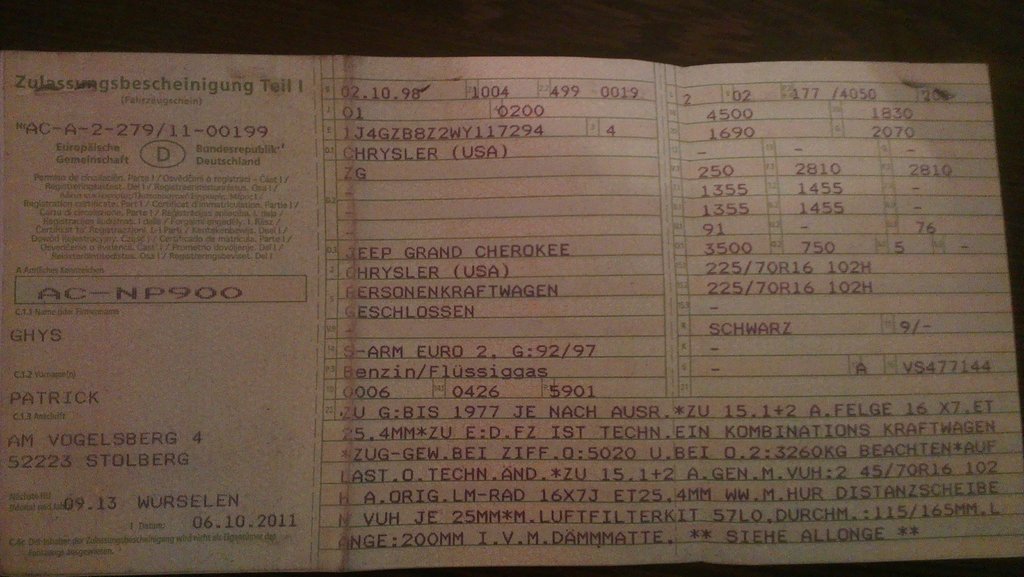 Zulassungsbescheinigung Teil I
(Fahrzeugschein)
Nr. AC-A-2-279/11-00199
Europäische Gemeinschaft D Bundesrepublik Deutschland
Permiso de circulación. Parte I / Osvědčení o registraci - Část I /
Registreringsattest. Del I / Registreerimistunnistus. Osa I /
Registration certificate. Part I / Certificat d'immatriculation. Partie I /
Carta di circolazione. Parte I / Reģistrācijas apliecība. I. daļa /
A Amtliches Kennzeichen
AC-NP900
C.1.1 Name oder Firmenname
GHYS
C.1.2 Vorname(n)
PATRICK
C.1.3 Anschrift
AM VOGELSBERG 4
52223 STOLBERG
Nächste HU
09.13 WÜRSELEN
I Datum: 06.10.2011
C.4c Der Inhaber der Zulassungsbescheinigung wird nicht als Eigentümer des Fahrzeugs ausgewiesen.
02.10.98 1004 499 0019
01 0200
1J4GZB8Z2WY117294 4
CHRYSLER (USA)
ZG
-
-
JEEP GRAND CHEROKEE
CHRYSLER (USA)
PERSONENKRAFTWAGEN
GESCHLOSSEN
-
S-ARM EURO 2, G:92/97
Benzin/Flüssiggas
0006 0426 5901
2 02 177 /4050
4500 1830
1690 2070
- - -
250 2810 2810
1355 1455 -
1355 1455 -
91 - 76
3500 750 5 -
225/70R16 102H
225/70R16 102H
-
SCHWARZ 9/-
-
- A VS477144
ZU G:BIS 1977 JE NACH AUSR.*ZU 15.1+2 A.FELGE 16 X7.ET
25.4MM*ZU E:D.FZ IST TECHN.EIN KOMBINATIONS KRAFTWAGEN
*ZUG-GEW.BEI ZIFF.O:5020 U.BEI O.2:3260KG BEACHTEN*AUF
LAST.O.TECHN.ÄND.*ZU 15.1+2 A.GEN.M.VUH:2 45/70R16 102
H A.ORIG.LM-RAD 16X7J ET25.4MM WW.M.HUR DISTANZSCHEIBE
N VUH JE 25MM*M.LUFTFILTERKIT 57LO.DURCHM.:115/165MM.L
ÄNGE:200MM I.V.M.DÄMMMATTE. ** SIEHE ALLONGE **